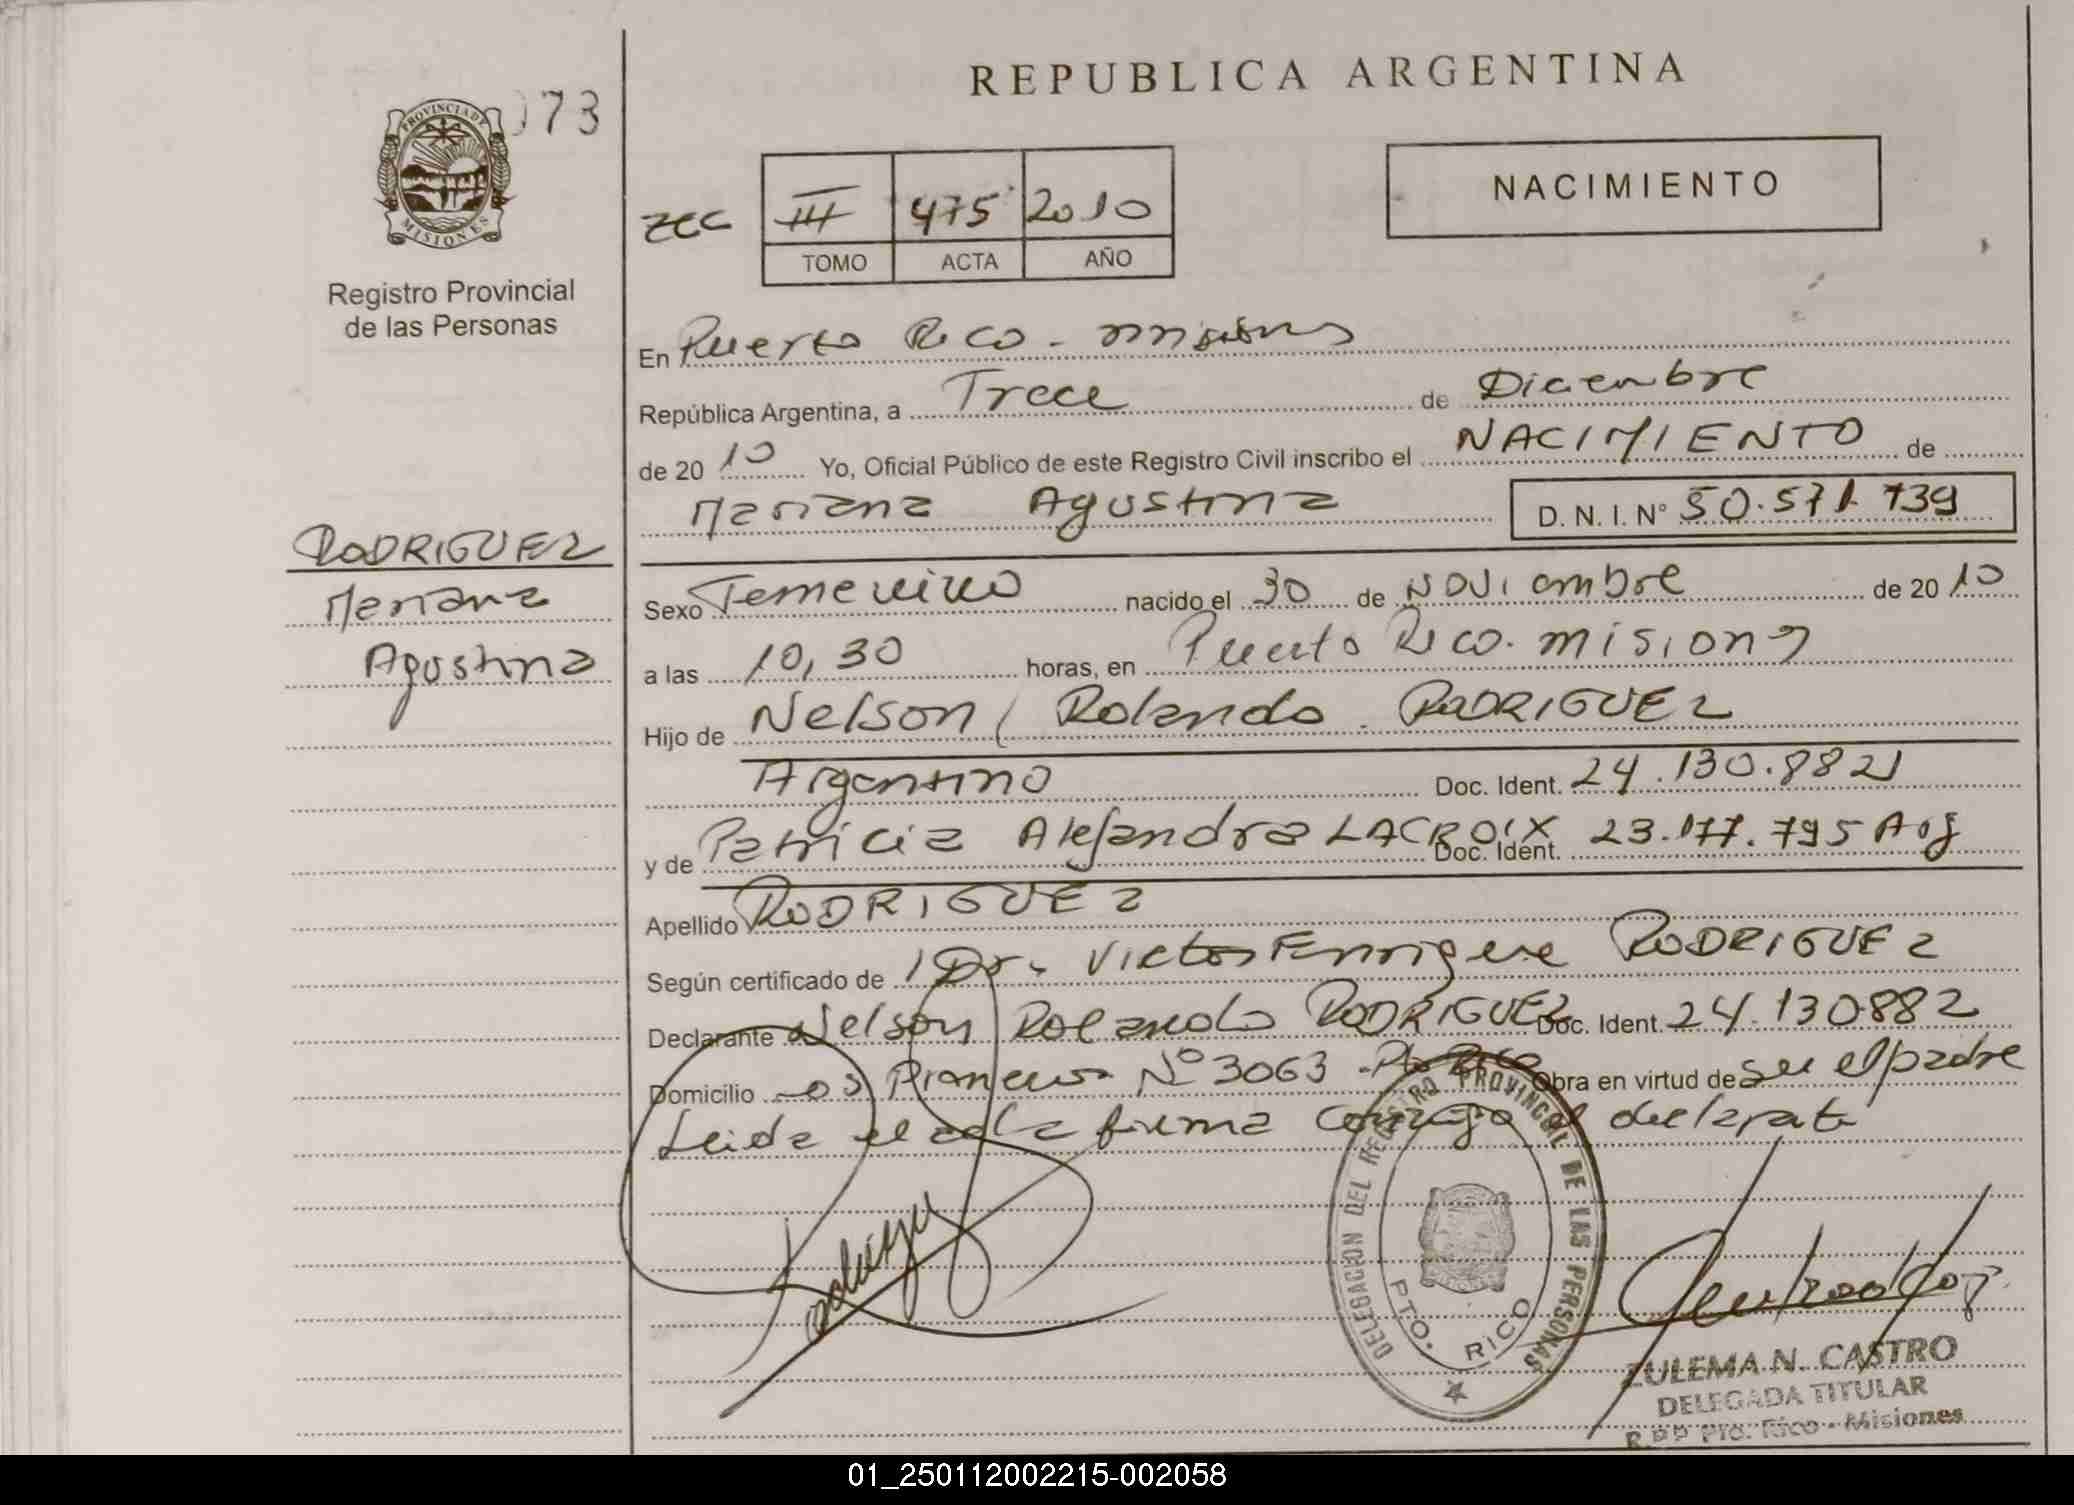 REPUBLICA ARGENTINA
073
PROVINCIA DE
MISIONES
Registro Provincial
de las Personas
NACIMIENTO
III 475 2010
TOMO ACTA AÑO
En Puerto Rico - Misiones
República Argentina, a Trece de Diciembre
de 2010 Yo, Oficial Público de este Registro Civil inscribo el NACIMIENTO de
Mariana Agustina D. N. I. N° 50.571.739
RODRIGUEZ
Mariana
Agustina
Sexo Femenino nacido el 30 de Noviembre de 2010
a las 10,30 horas, en Puerto Rico. Misiones
Hijo de Nelson Rolando RODRIGUEZ
Argentino Doc. Ident. 24.130.882
y de Patricia Alejandra LACROIX Doc. Ident. 23.177.795 Arg
Apellido RODRIGUEZ
Según certificado de Dr. Victor Enrique RODRIGUEZ
Declarante Nelson Rolando RODRIGUEZ Doc. Ident. 24.130.882
Domicilio Los Pioneros N° 3063 - Pto Rico Obra en virtud de ser el padre
Leida el acta firma conmigo el declarante
DELEGACION DEL REGISTRO PROVINCIAL DE LAS PERSONAS
PTO. RICO
ZULEMA N. CASTRO
DELEGADA TITULAR
R.P.P. Pto. Rico - Misiones
01_250112002215-002058